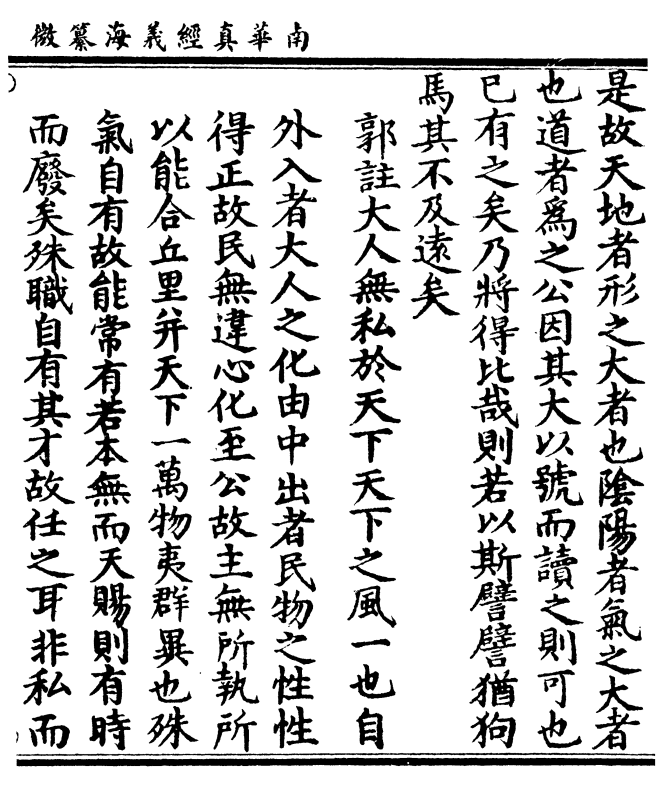 南華真經義海纂微
是故天地者形之大者也陰陽者氣之大者
也道者爲之公因其大以號而讀之則可也
已有之矣乃將得比哉則若以斯譬譬猶狗
馬其不及遠矣
郭註大人無私於天下天下之風一也自
外入者大人之化由中出者民物之性性
得正故民無違心化至公故主無所執所
以能合丘里并天下一萬物夷群異也殊
氣自有故能常有若本無而天賜則有時
而廢矣殊職自有其才故任之耳非私而